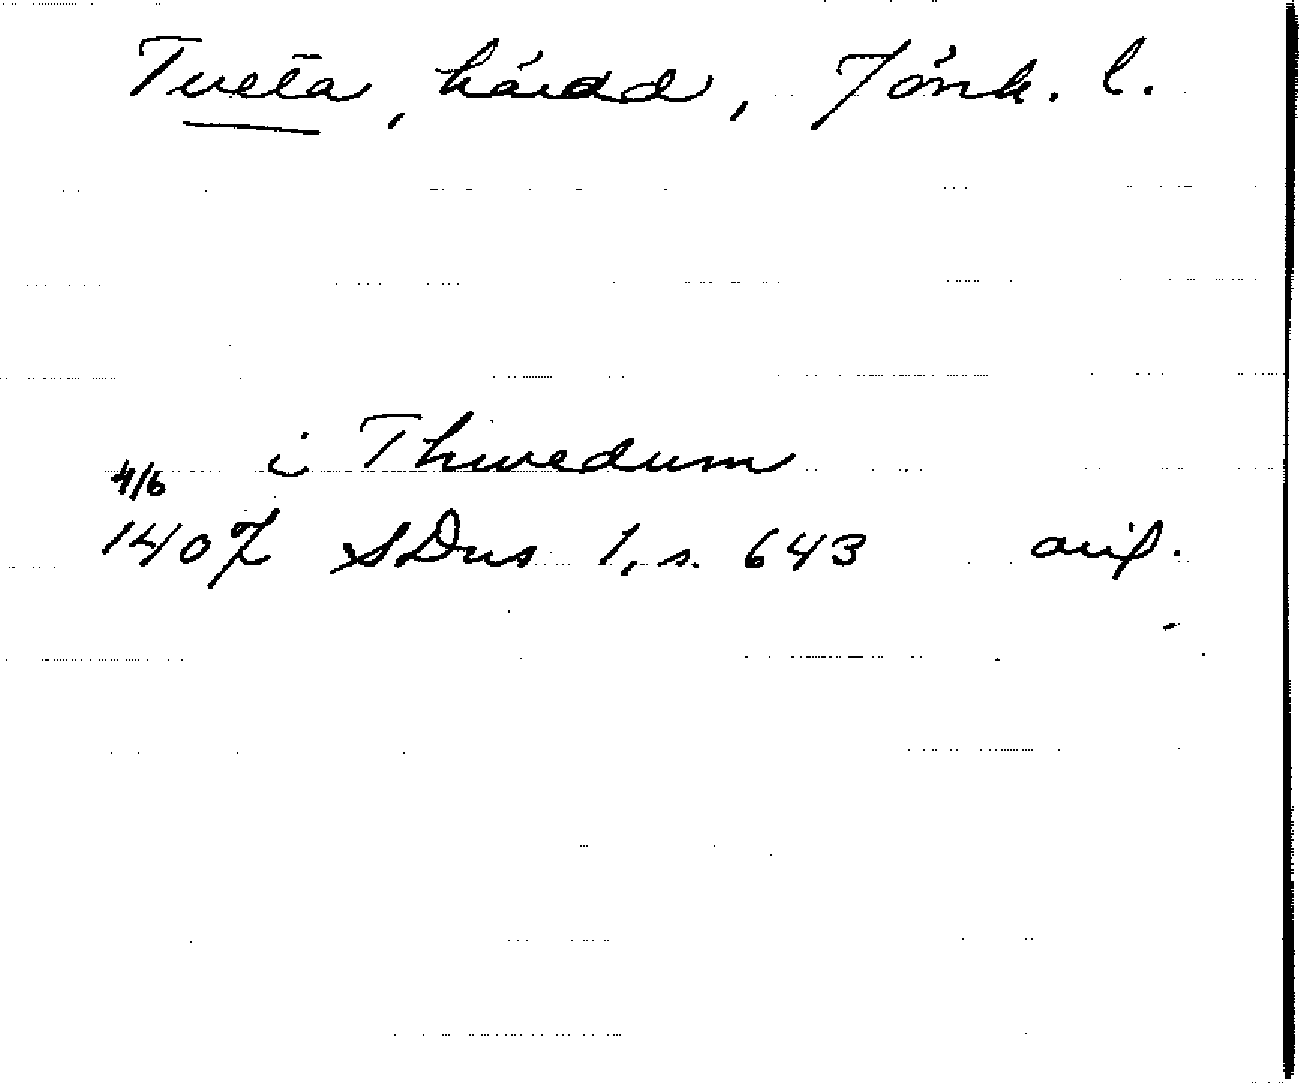 Tveta, härad, Jönk. l.
i Thwedum
4/6
1407 SDns 1, s. 643 avs.